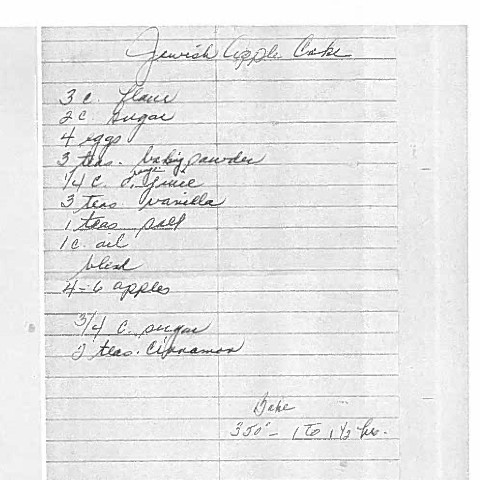 Jewish Apple Cake
3 c. flour
2 c sugar
4 eggs
3 teas. baking powder
1/4 c. O. juice
3 teas vanilla
1 teas salt
1 c. oil
blend
4-6 apples
3/4 c. sugar
2 teas. cinnamon
Bake
350° - 1 to 1 1/2 hrs.